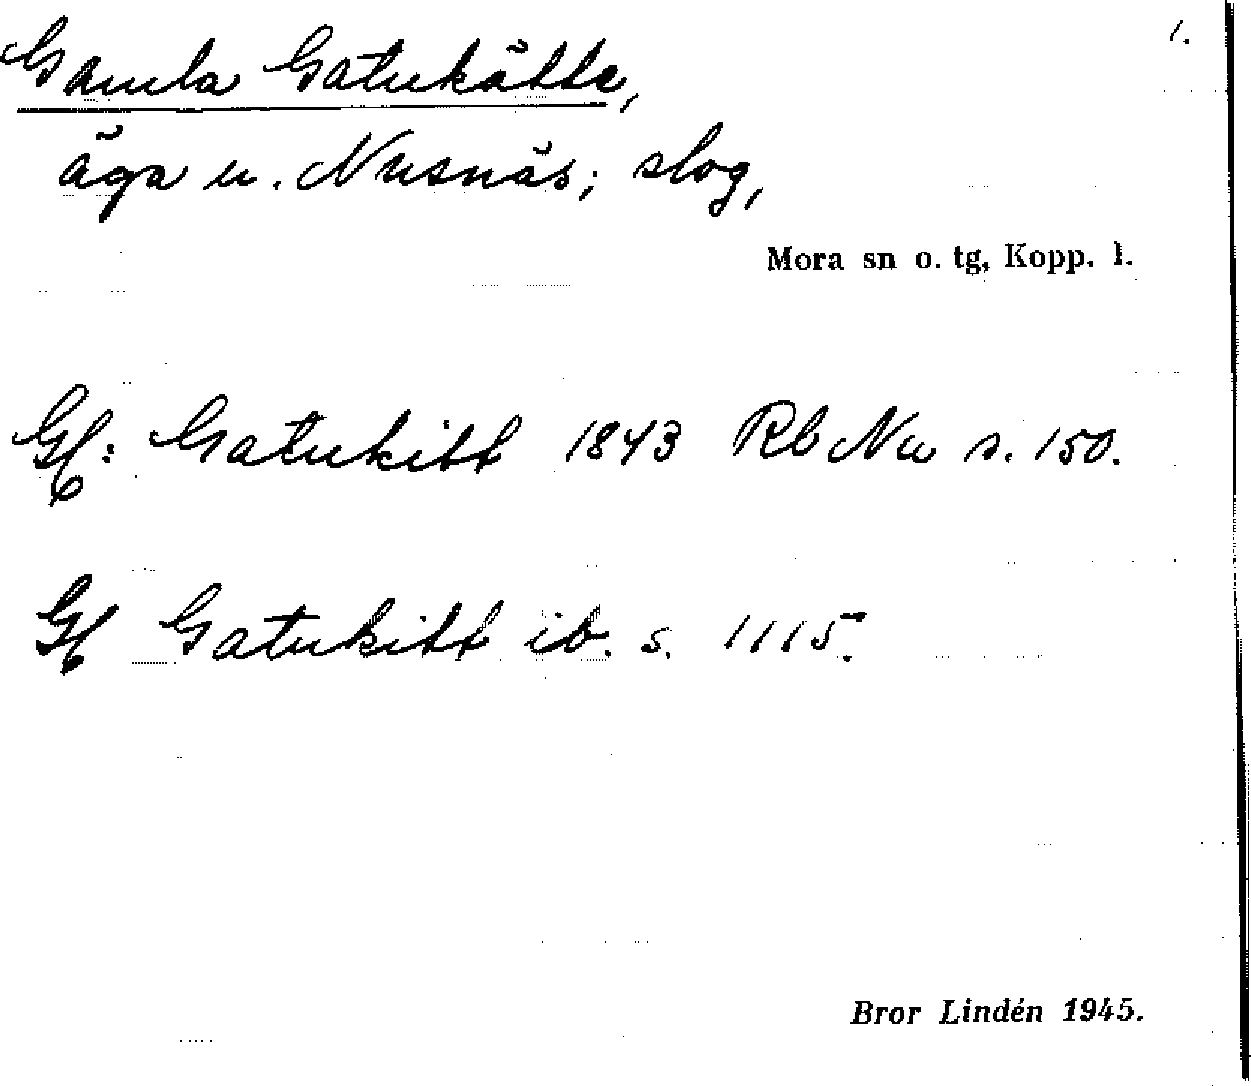 1.
Gamla Gatukätte,
äga u. Nusnäs; slog,
Mora sn o. tg, Kopp. l.
Gl: Gatukitt 1843 Rb Nu s. 150.
Gl Gatukitt ib. s. 1115.
Bror Lindén 1945.